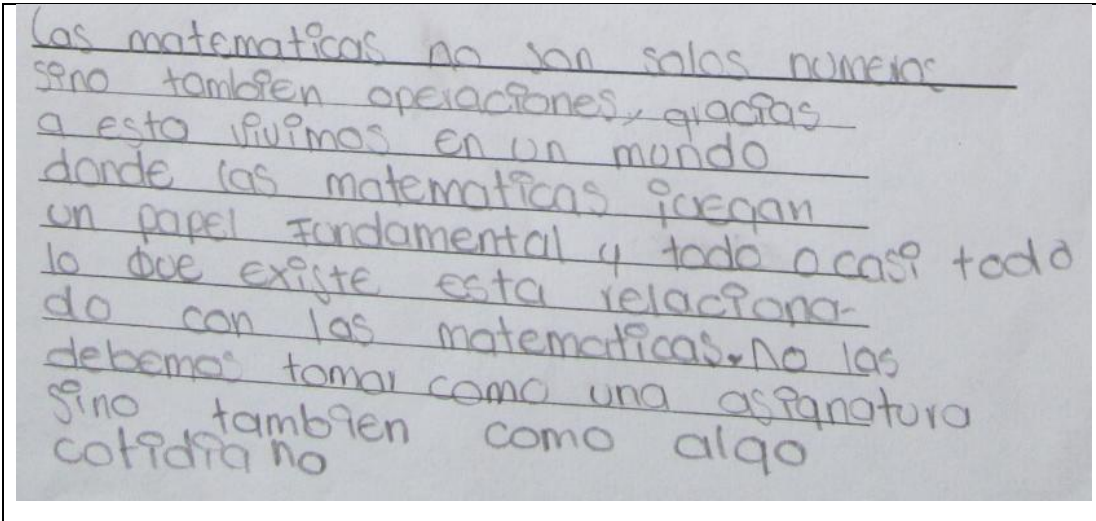 Las matematicas no son solos numeros
sino tambien operaciones, gracias
a esto vivimos en un mundo
donde las matematicas juegan
un papel fundamental y todo o casi todo
lo que existe esta relaciona-
do con las matematicas. no las
debemos tomar como una asignatura
sino tambien como algo
cotidiano